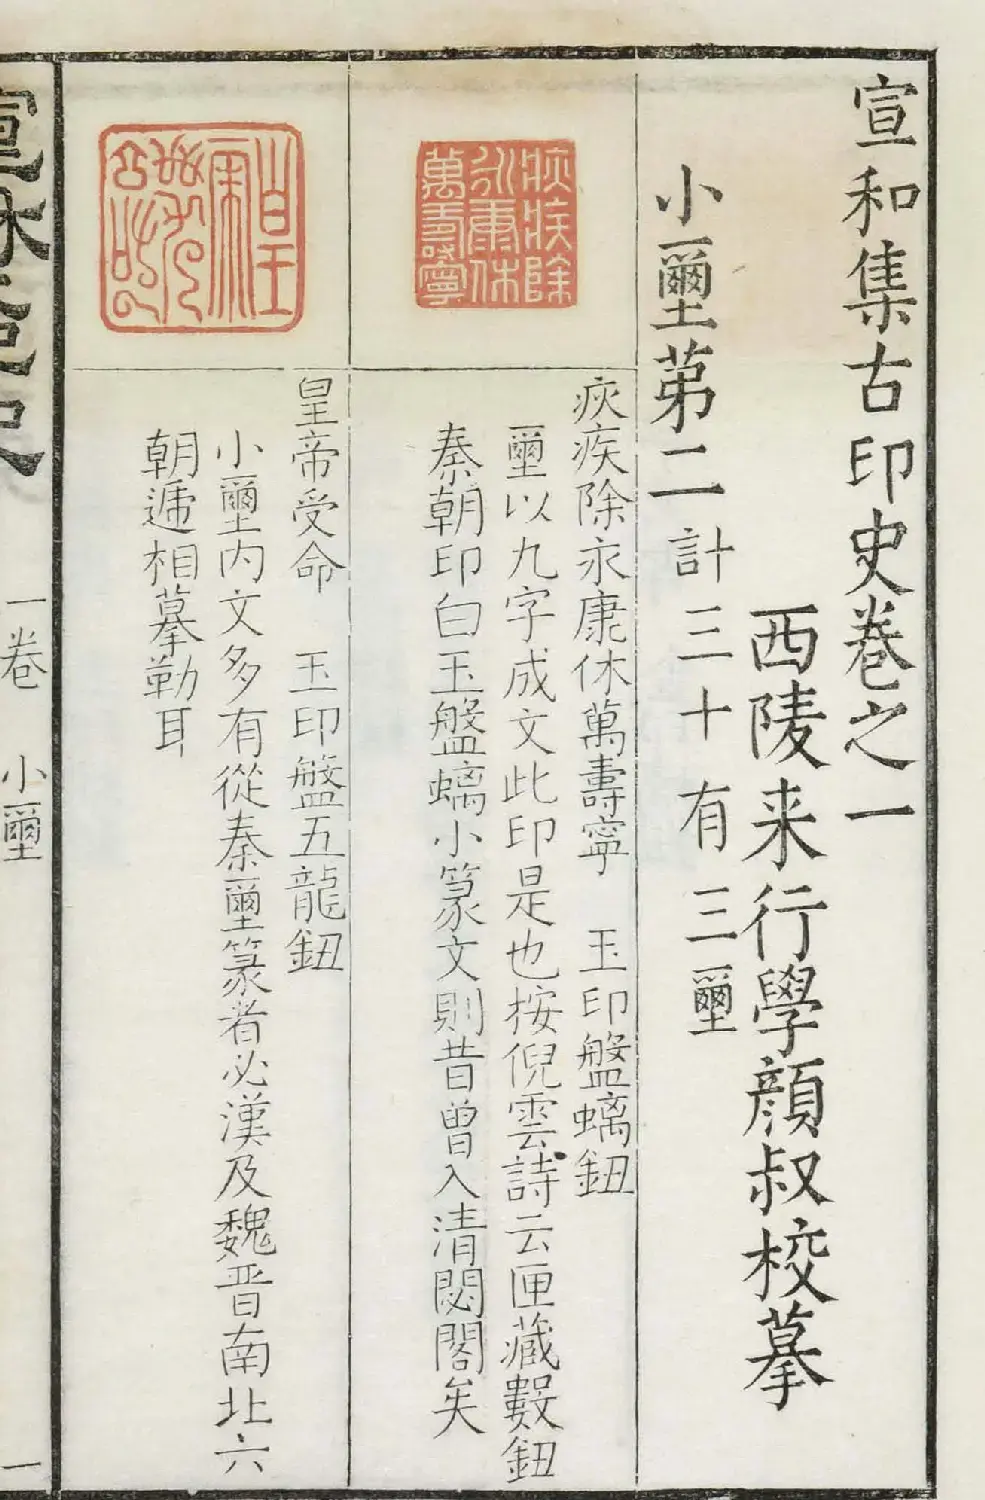 宣和集古印史卷之一
西陵来行學顏叔校摹
小璽苐二計三十有三璽
疢疾除永康休萬壽寧
疢疾除永康休萬壽寧 玉印盤螭鈕
璽以九字成文此印是也按倪雲詩云匣藏數鈕
秦朝印白玉盤螭小篆文則昔曾入清閟閣矣
皇帝受命
皇帝受命 玉印盤五龍鈕
小璽内文多有從秦璽篆者必漢及魏晋南北六
朝遞相摹勒耳
一卷 小璽 一